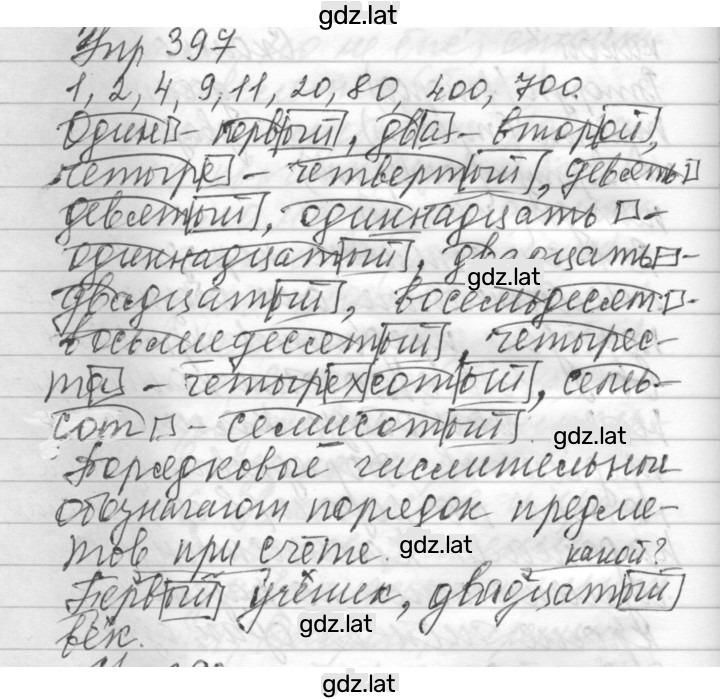 gdz.lat
Упр 397
1, 2, 4, 9, 11, 20, 80, 400, 700.
Один - первый, два - второй,
четыре - четвертый, девять
девятый, одиннадцать -
одиннадцатый, двадцать -
gdz.lat
двадцатый, восемьдесят -
восьмидесятый, четырес-
та - четырехсотый, семь-
сот - семисотый.
gdz.lat
Порядковые числительные
обозначают порядок предме-
тов при счёте.
gdz.lat
какой?
Первый ученик, двадцатый
век.
gdz.lat
gdz.lat